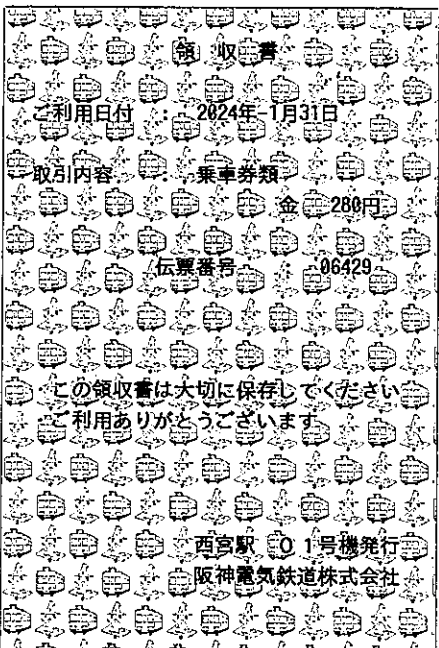 領収書
ご利用日付 : 2024年-1月31日
取引内容 : 乗車券類
金 280円
伝票番号 : 06429
この領収書は大切に保存してください
ご利用ありがとうございます
西宮駅 01号機発行
阪神電気鉄道株式会社